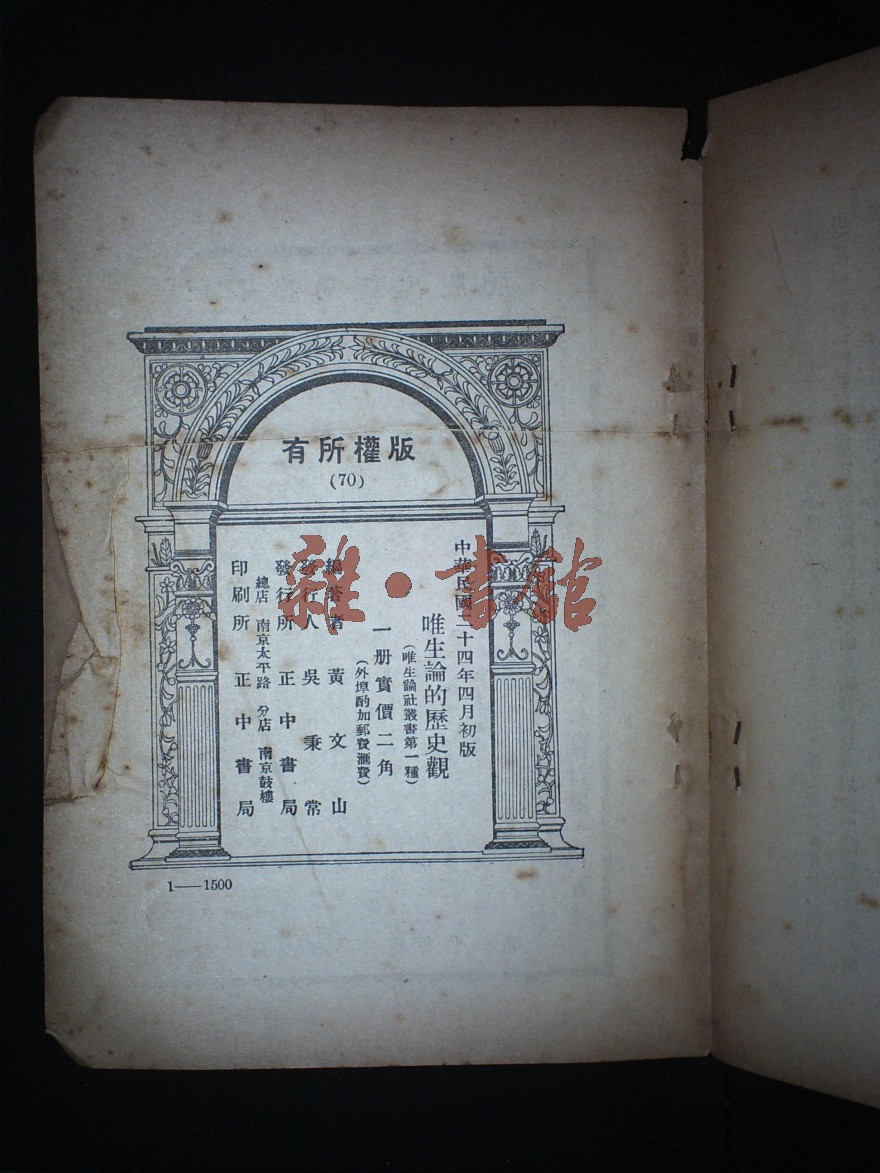 版權所有
(70)
中華民國二十四年四月初版
唯生論的歷史觀
(唯生論社叢書第一種)
一册實價二角
(外埠酌加郵費滙費)
編著者 黃文山
發行人 吳秉常
發行所 正中書局
總店 南京太平路 分店 南京鼓樓
印刷所 正中書局
1——1500
雜·書館